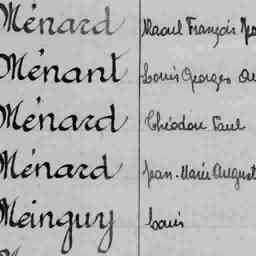 Ménard Raoul François
Ménant Louis Georges
Ménard Théodore Paul
Ménard Jean-Marie August
Meinguy Louis